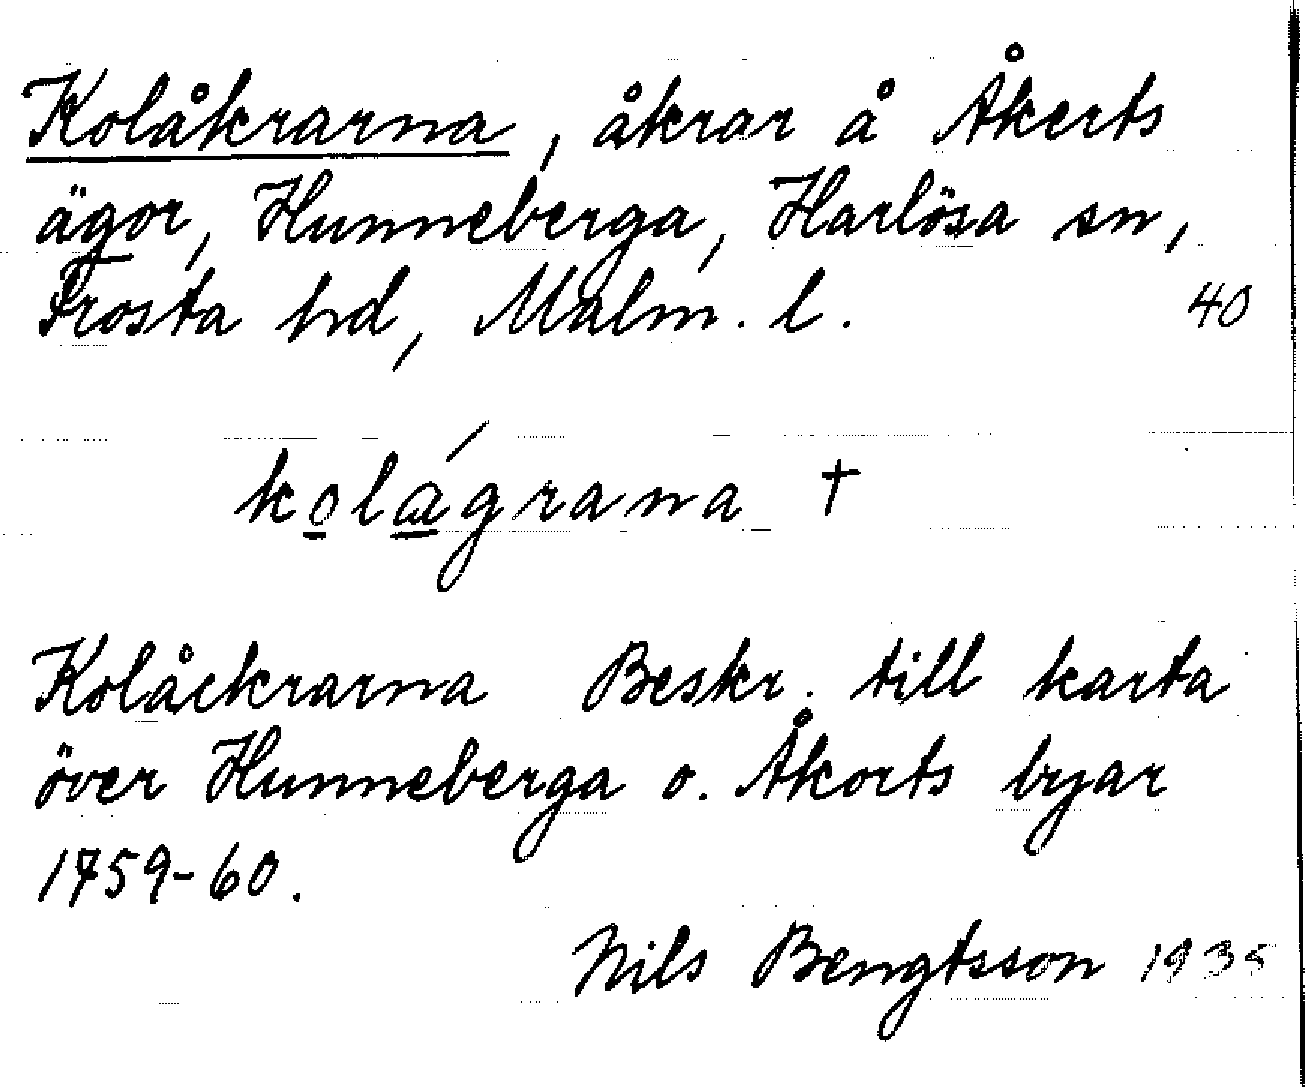 Kolåkrarna, åkrar å Åkerts
ägor, Hunneberga, Harlösa sn,
Frosta hd, Malm. l. 40
kolágrana †
Kolåckrarna Beskr. till karta
över Hunneberga o. Åkorts byar
1759-60.
Nils Bengtsson 1935